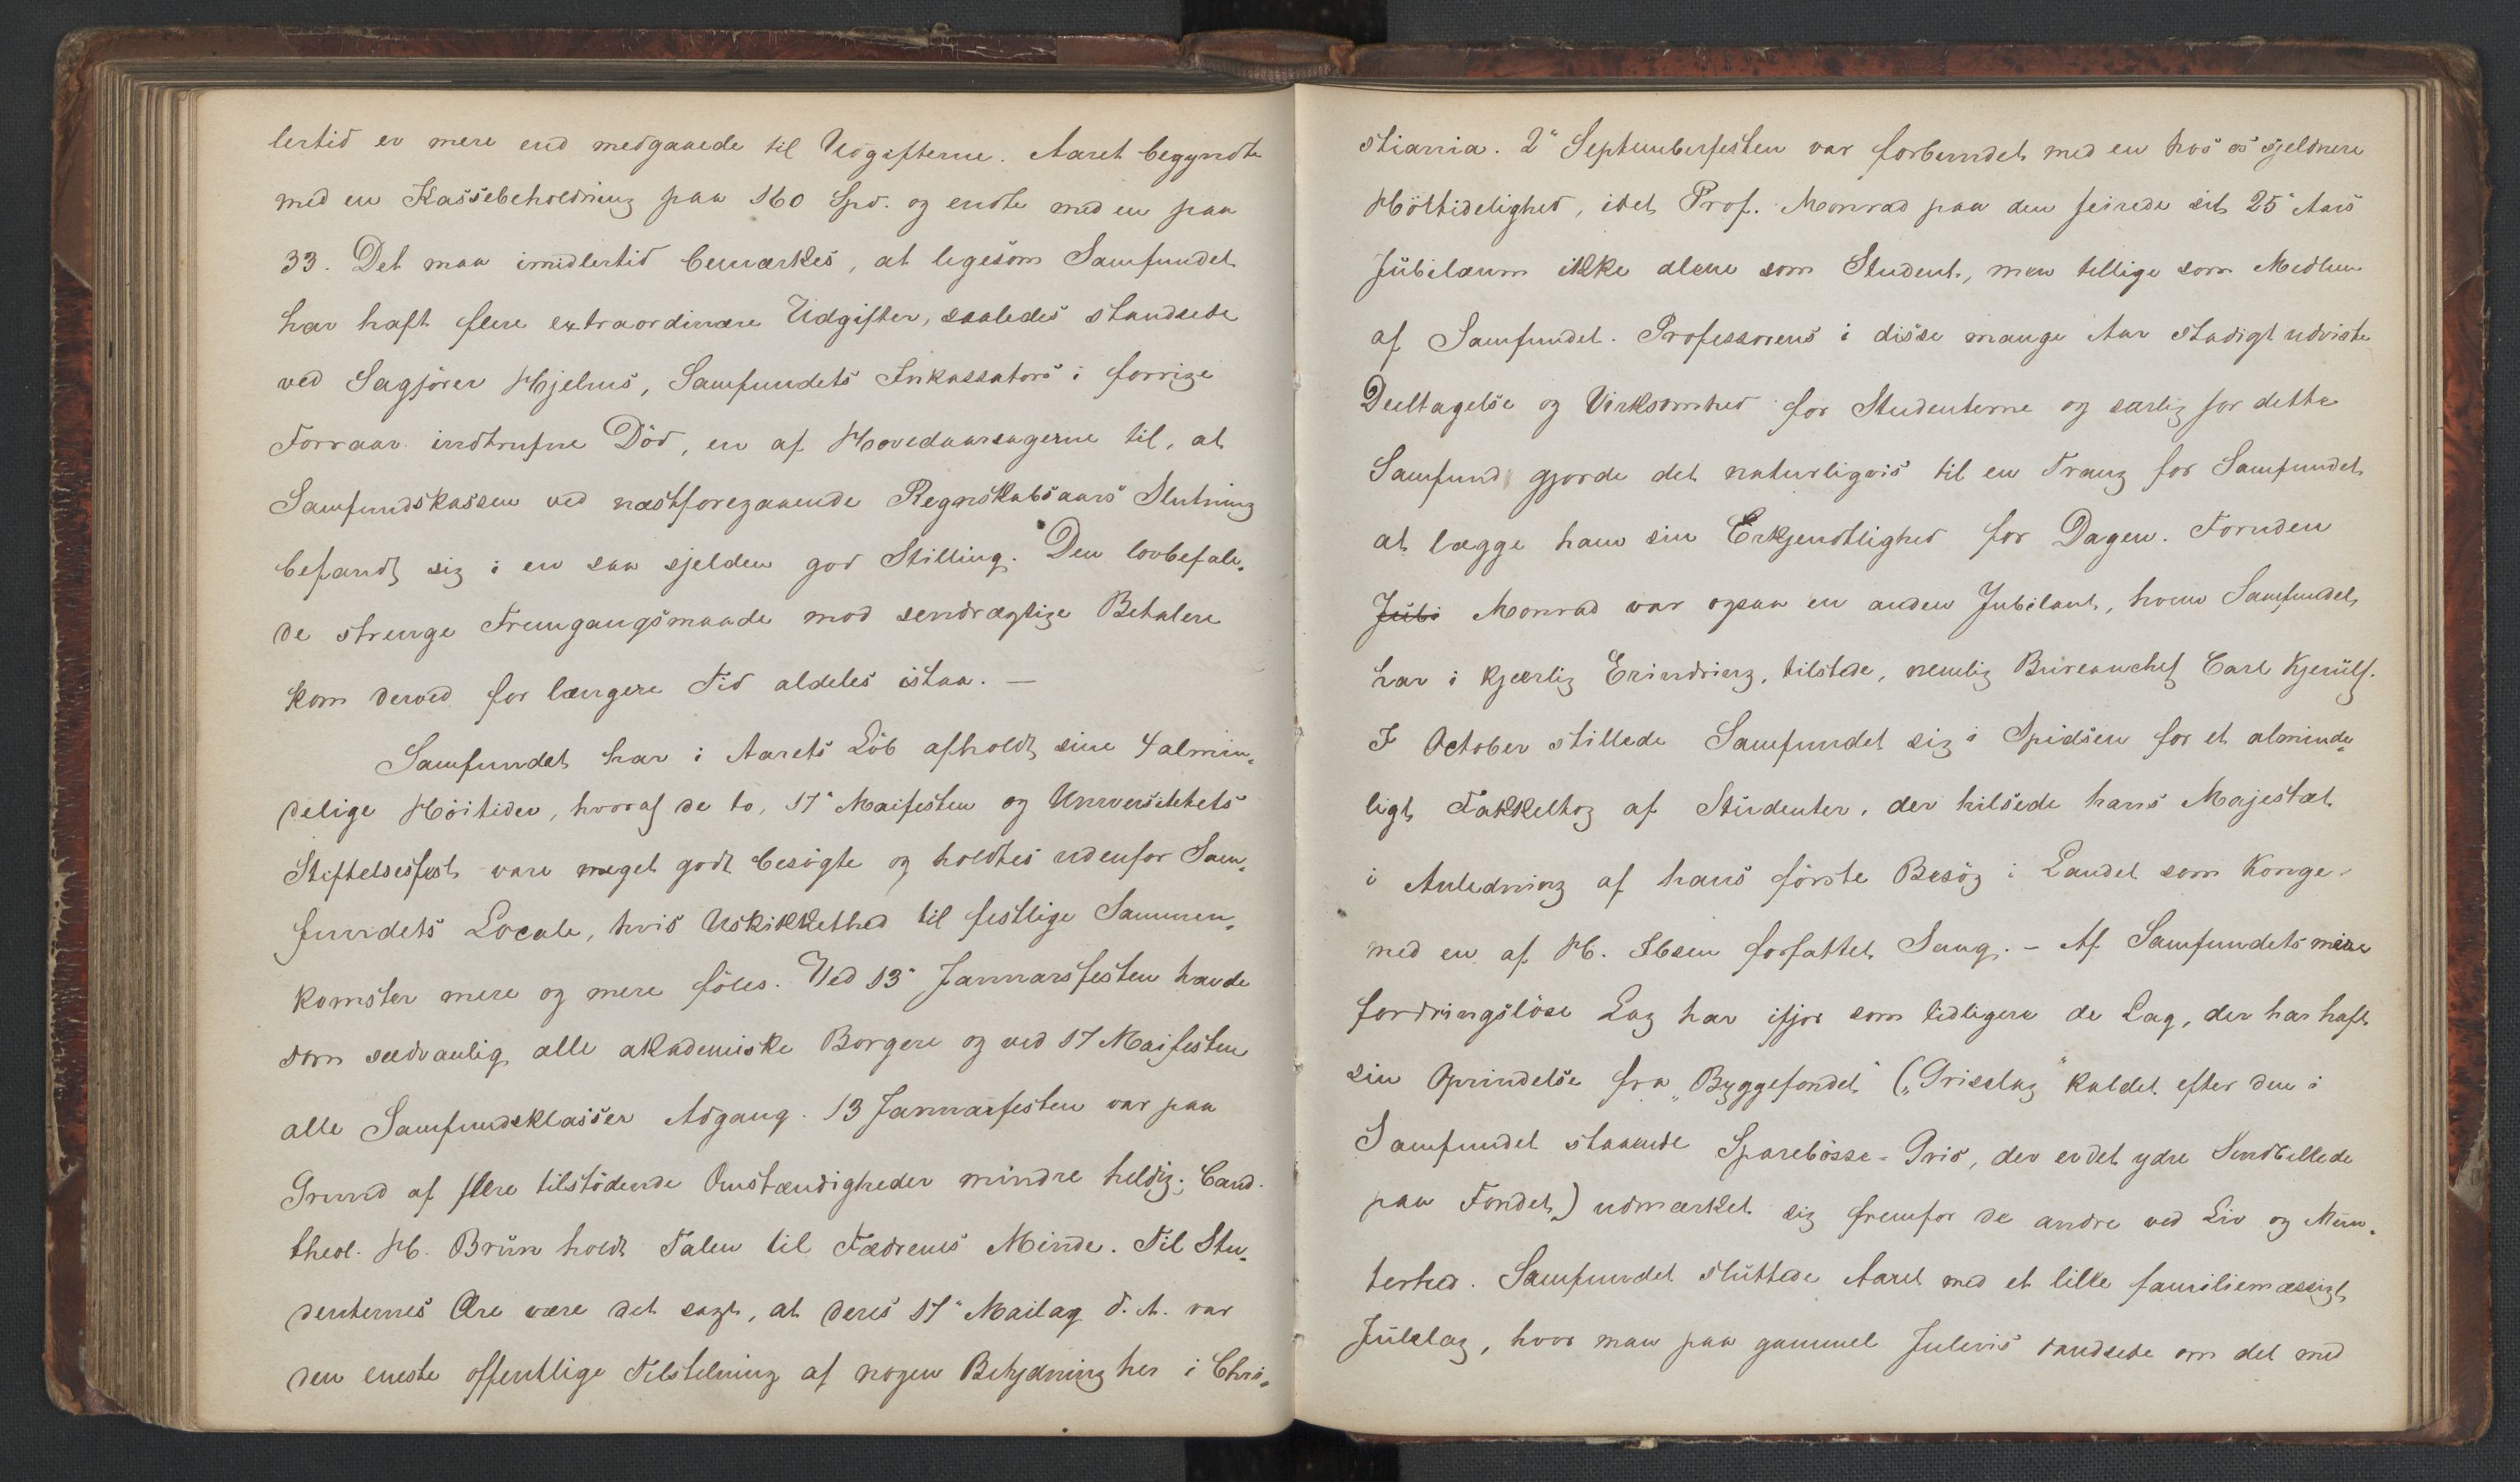 lertid er mere end medgaaede til Udgifterne. Aaret begyndte
med en Kassebeholdning paa 160 Spd. og endte med en paa
33. Det maa imidlertid bemærkes, at ligesom Samfundet
har haft flere extraordinære Udgifter, saaledes standsede
ved Sagfører Hjelms, Samfundets Inkassators i forrige
Foraar indtrufne Död, en af Hovedaarsagerne til, at
Samfundskassen ved næstforegaaende Regnskabsaars Slutning
befandt sig i en saa sjelden god Stilling. Den lovbefale„
de strenge Fremgangsmaade mod sendrægtige Betalere
kom derved for længere Tid aldeles istaa. —
Samfundet har i Aarets Löb afholdt sine 4 almin„
delige Höitider, hvoraf de to, 17' Maifesten og Universitetets
Stiftelsesfest vare meget godt besögte og holdtes udenfor Sam„
fundets Locale, hvis Uskikkethed til festlige Sammen„
komster mere og mere föles. Ved 13' Januarsfesten havde
som sædvanlig alle akademiske Borgere og ved 17 Maifesten
alle Samfundsklasser Adgang. 13 Januarfesten var paa
Grund af flere tilstödende Omstændigheder mindre heldig; Cand.
theol. H. Brün holdt Talen til Fædrenes Minde. Til Stu„
denternes Ære være det sagt, at deres 17' Mailag d. A. var
den eneste offentlige Tilstelning af nogen Betydning her i Chri„
stiania. 2" Septemberfesten var forbundet med en hos os sjeldnere
Höitidelighed, idet Prof. Monrad paa den feirede sit 25' Aars
Jübilæum ikke alene som Student, men tillige som Medlem
af Samfundet. Professorens i disse mange Aar stadigt udviste
Deeltagelse og Virksomhed for Studenterne og særlig for dette
Samfund gjorde det naturligvis til en Trang for Samfundet
at lægge ham sin Erkjendtlighed for Dagen. Foruden
Jübi Monrad var ogsaa en anden Jubilant, hvem Samfundet
har i kjærlig Erindring, tilstede, nemlig Bureauchef Carl Kjerülf.
I October stillede Samfundet sig i Spidsen for et alminde„
ligt Fakkeltog af Studenter, der hilsede hans Majestæt
i Anledning af hans förste Besög i Landet som Konge
med en af H. Ibsen forfattet Sang. – Af Samfundets mere
fordringslöse Lag har ifjor som tidligere de Lag, der har haft
sin Oprindelse fra „Byggefondet" („Griselag" kaldet efter den i
Samfundet staaende Sparebösse-Gris, der er det ydre Sindbillede
paa Fondet) udmærket sig fremfor de andre ved Liv og Mun„
terhed. Samfundet sluttede Aaret med et lille familiemæssigt
Jülelag, hvor man paa gammel Julevis dandsede om det med